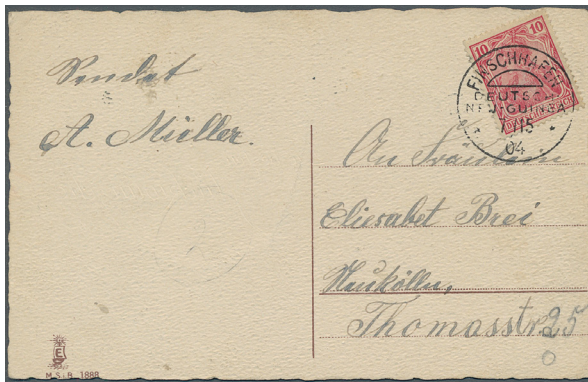 Sendet
A. Müller.
10 10
FINSCHHAFEN
DEUTSCH
NEU-GUINEA
7/15
04
An Fräulein
Eliesabet Brei
Neukölln,
Thomasstr. 25
E
M.S.i.B. 1888